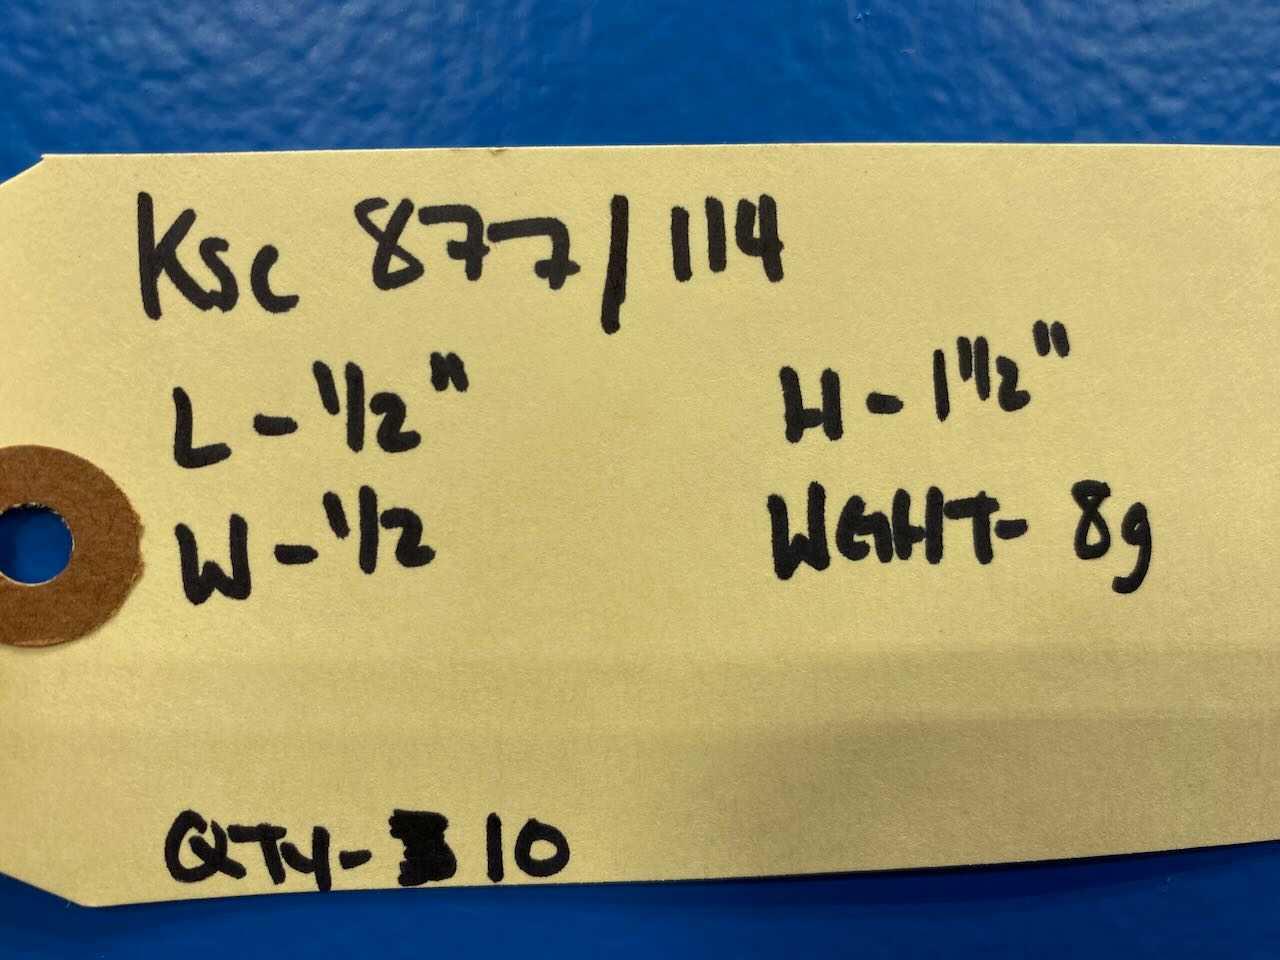 Ksc 877/114
L - 1/2" H - 1 1/2"
W - 1/2 WGHT- 8g
QTY- 10